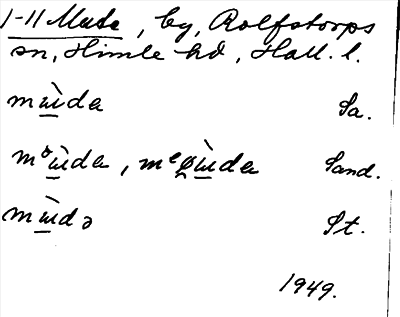 1-11 Mute, by, Rolfstorps
sn, Himle hd, Hall. l.
mɯ̱̀da Sa.
mᵒɯ̱̀da, mᵉø̯ɯ̱̀da Sand.
mɯ̱̀də St.
1949.